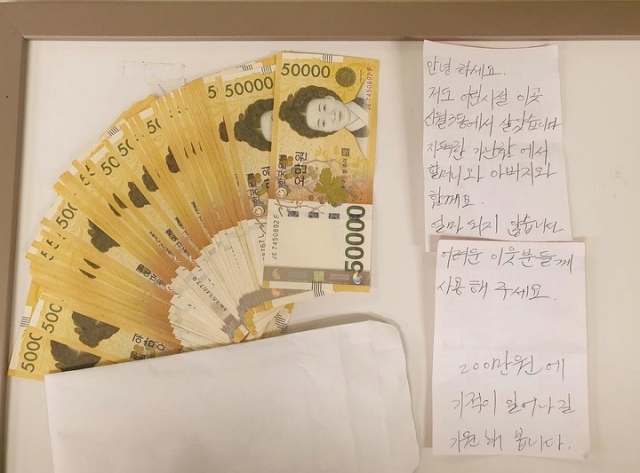 50000
JE 7450892 F
오만원
한국은행
JE 7450892 F
50000
50000
안녕 하세요.
저도 어린시절 이곳
신월3동에서 살았습니다
지독한 가난함 에서
할머니와 아버지와
함께요.
얼마 되지 않습니다
어려운 이웃분들께
사용해 주세요.
200만원에
기적이 일어나길
기원해 봅니다.